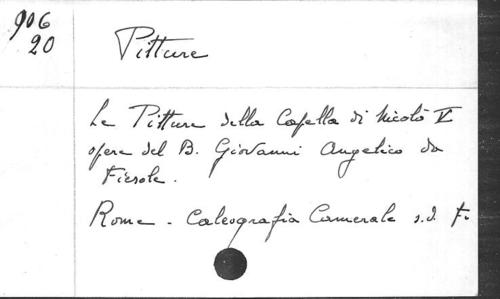 906
20
Pitture
Le Pitture della Capella di Nicolò V
opere del B. Giovanni Angelico da
Fiesole.
Rome - Calcografia Camerale s.d. F.